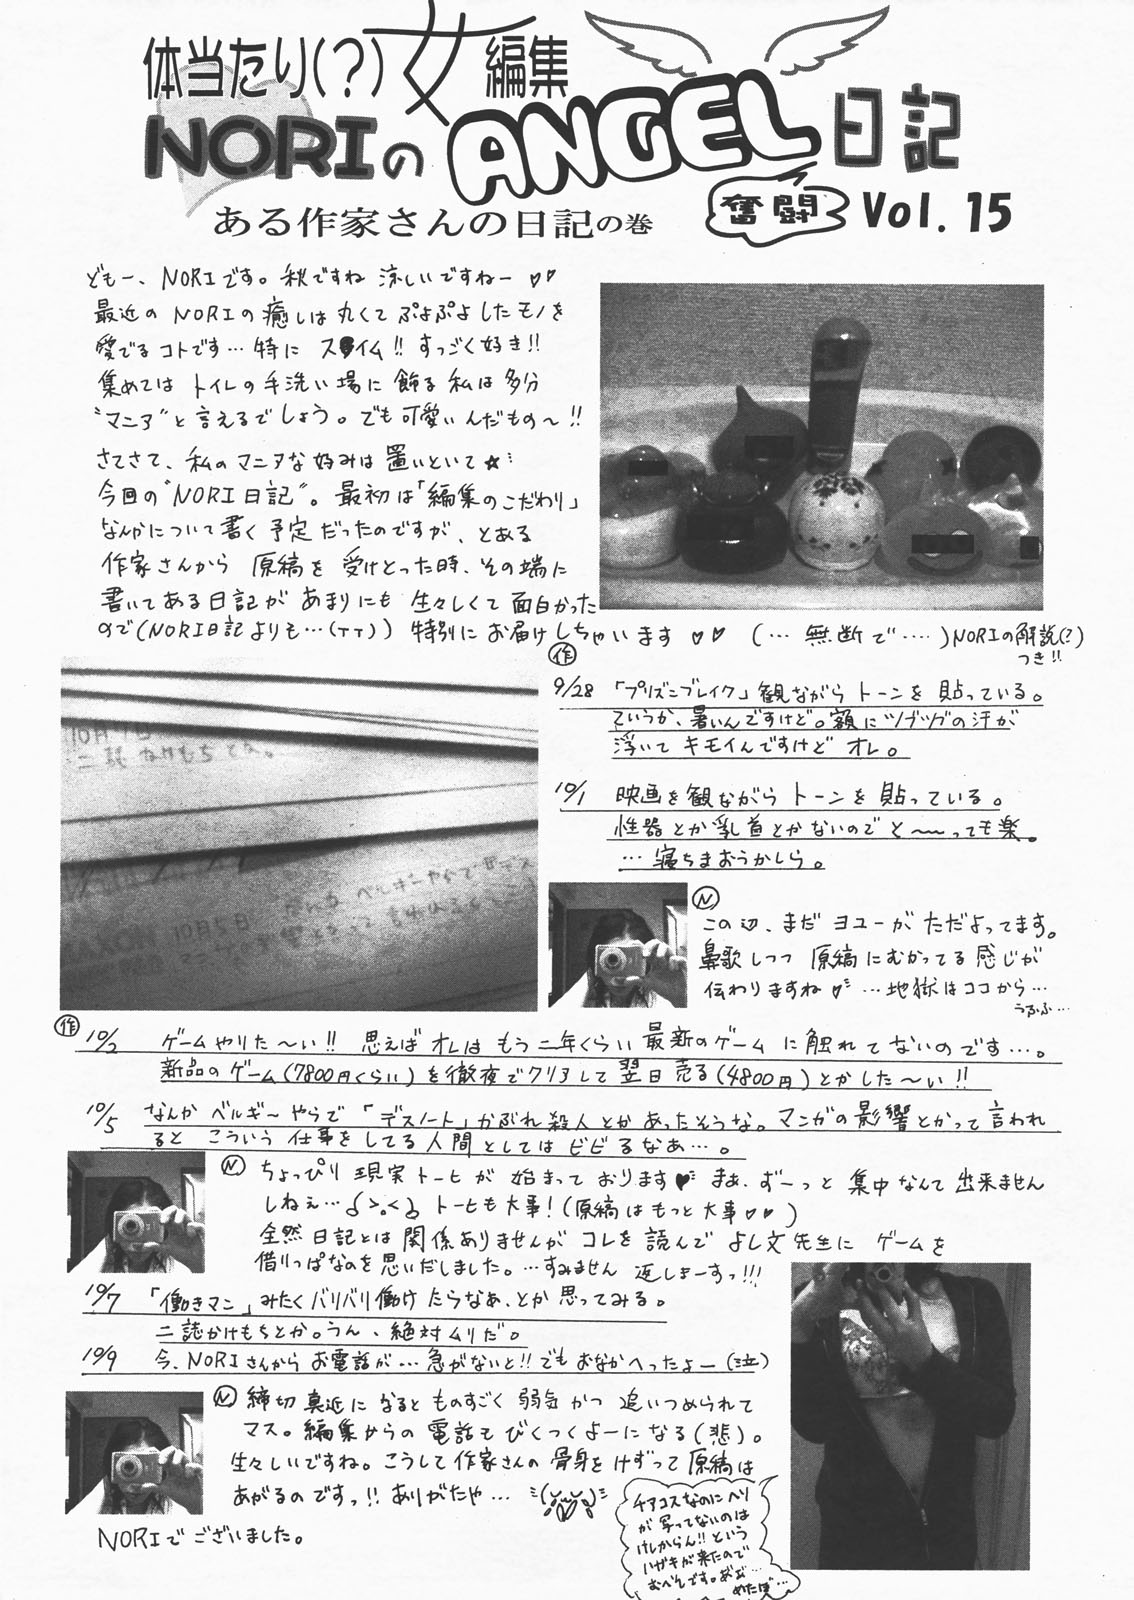 体当たり(?)女編集
NORIのANGEL日記
奮闘 Vol. 15
ある作家さんの日記の巻
どもー、NORIです。秋ですね 涼しいですねー ♡♡
最近の NORIの癒しは丸くて ぷよぷよ したモノを
愛でる コトです…特に ス●イム!! すっごく好き!!
集めては トイレの手洗い場に 飾る 私は 多分
“マニア”と 言えるでしょう。でも 可愛いんだもの〜!!
さてさて、私のマニアな好みは 置いといて☆
今回の“NORI日記”。最初は「編集のこだわり」
なんかについて書く予定だったのですが、とある
作家さんから 原稿を 受けとった時、その端に
書いてある日記が あまりにも 生々しくて 面白かった
ので(NORI日記よりも…(TT)) 特別に お届けしちゃいます ♡♡ (… 無断で ‥‥)NORIの解説(?)
つき!!
10月7日
二誌 かけもちとか。
AXON 10月5日
作
9/28 「プリズンブレイク」観ながら トーンを 貼っている。
ていうか、暑いんですけど。額にツブツブの汗が
浮いて キモイんですけど オレ。
10/1 映画を観ながら トーンを 貼っている。
性器とか乳首とかないので と〜〜っても楽。
… 寝ちまおうかしら。
N
この辺、まだ ヨユーが ただよってます。
鼻歌しつつ 原稿にむかってる 感じが
伝わりますね♡ …地獄はココから…
うふふ…
作
10/2 ゲームやりた〜い!! 思えば オレは もう 二年くらい 最新のゲームに 触れてないのです…。
新品のゲーム(7800円くらい)を徹夜でクリアして 翌日 売る(4800円)とかした〜い!!
10/5 なんか ベルギーやらで「デスノート」かぶれ殺人とかあったそうな。マンガの影響とかって言われ
ると こういう 仕事を してる 人間としては ビビるなあ…。
N ちょっぴり 現実 トーヒが 始まって おります♡ まあ、ずーっと 集中なんて 出来ません
しねぇ… トーヒも大事!(原稿は もっと大事♡♡)
全然 日記とは 関係ありませんが コレを 読んで よし文 先生に ゲームを
借りっぱなのを思いだしました。…すみません 返しまーすっ!!!
10/7 「働きマン」みたく バリバリ 働け たらなあ、とか 思ってみる。
二誌かけもちとか。うん、絶対 ムリだ。
10/9 今、NORIさんから お電話が… 急がないと!! でも おなかへったよー(泣)
N 締切 真近に なると ものすごく 弱気 かつ 追いつめられて
マス。編集からの 電話で びくつくよーになる(悲)。
生々しいですね。こうして作家さんの 骨身を けずって 原稿は
あがるのですっ!! ありがたや…
NORIで ございました。
チアコスなのに ヘソ
が 写ってないのは
けしからん!! という
ハガキが来たので
めたぼ…